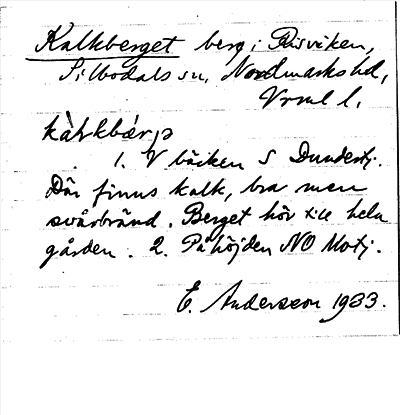 Kalkberget berg i Risviken,
Silbodals sn, Nordmarks hd,
Vrml l.
kàlkbǽrjə
1. V bäcken S Dundertj.
Där finns kalk, bra men
svårbränd. Berget hör till hela
gården. 2. På höjden NO Motj.
E. Andersson 1933.